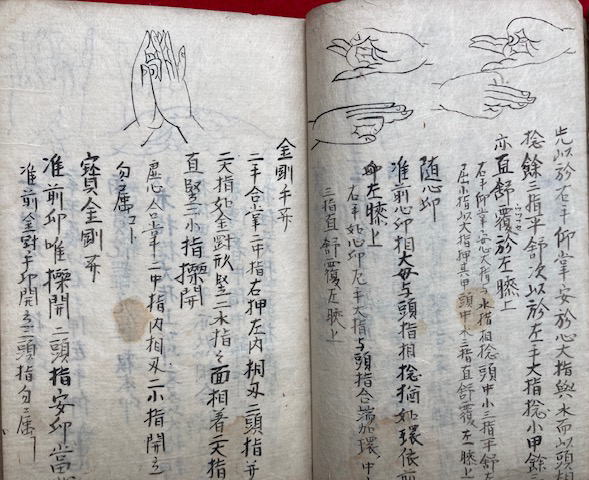 先以於右手仰掌安於心大指與水而以頭相
捻餘三指平舒次以於左手大指捻小甲餘三
亦直舒覆於左膝上
右手仰掌安心大指与水指相捻頭中小三指平舒左
屈小指以大指押其甲頭中水三指直舒覆左膝上
隨心印
准前心印相大母与頭指相捻猶如環依
左膝上
右手如心印左手大指与頭指合端如環中
三指直舒覆左膝上
金剛手
二手合掌二中指右押左內相叉二頭指
二大指如金對形竪二水指之面相着二大指
直竪二小指擽開
虛心合掌二中指內相叉二小指開立
勾屬
寳金剛
准前印唯擽開二頭指安印當
准前金對手印開立二頭指勾屬